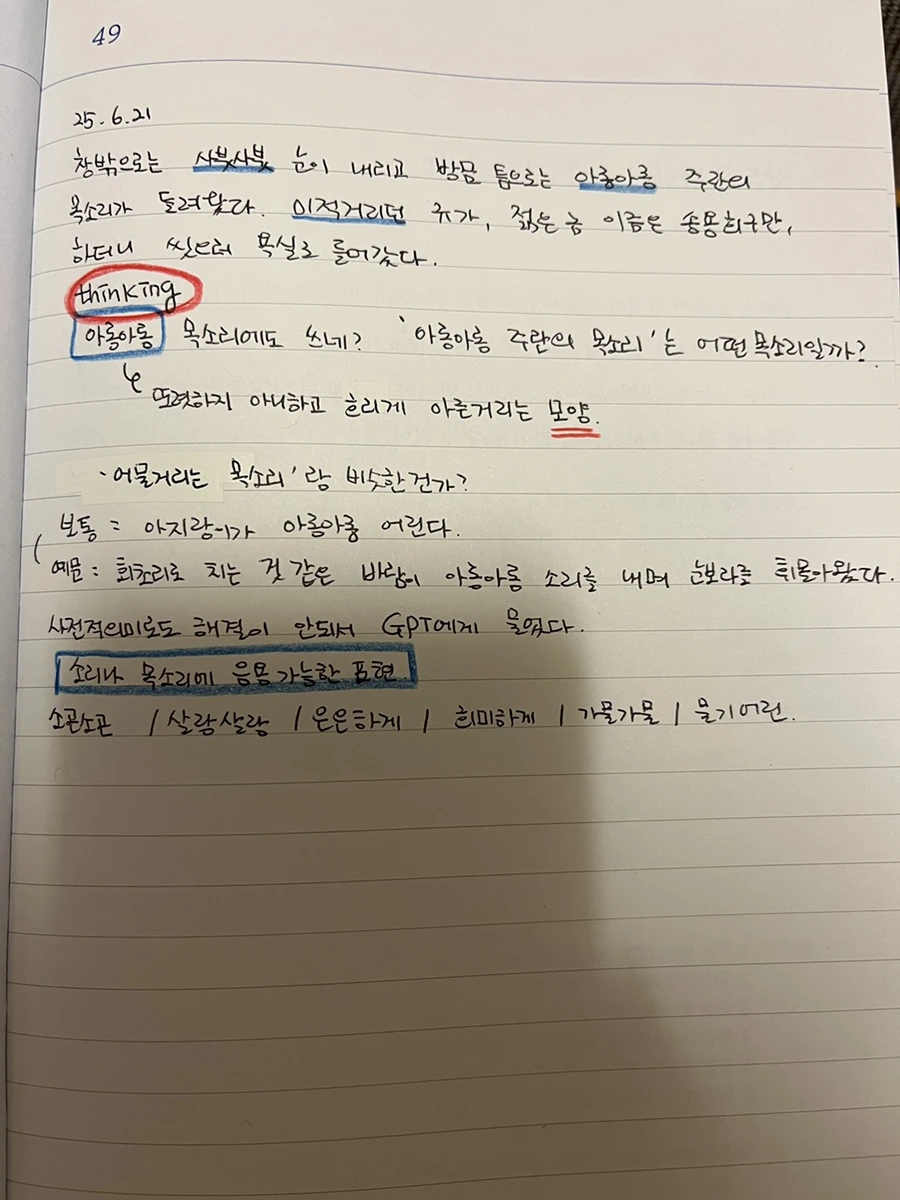 49
25.6.21
창밖으로는 사붓사붓 눈이 내리고 방문 틈으로는 아롱아롱 주란의
목소리가 들려왔다. 이적거리던 규가, 젊은 놈 이름은 송몽희구만,
하더니 씻으러 욕실로 들어갔다.
thinking
아롱아롱 목소리에도 쓰네? '아롱아롱 주란의 목소리'는 어떤 목소리일까?
또렷하지 아니하고 흐리게 아른거리는 모양.
'어물거리는 목소리'랑 비슷한건가?
보통 = 아지랑이가 아롱아롱 어린다.
예문 : 회초리로 치는 것 같은 바람이 아롱아롱 소리를 내며 눈보라를 휘몰아왔다.
사전적의미로도 해결이 안되서 GPT에게 물었다.
소리나 목소리에 응용 가능한 표현.
소곤소곤 / 살랑살랑 / 은은하게 / 희미하게 / 가물가물 / 물기어린.